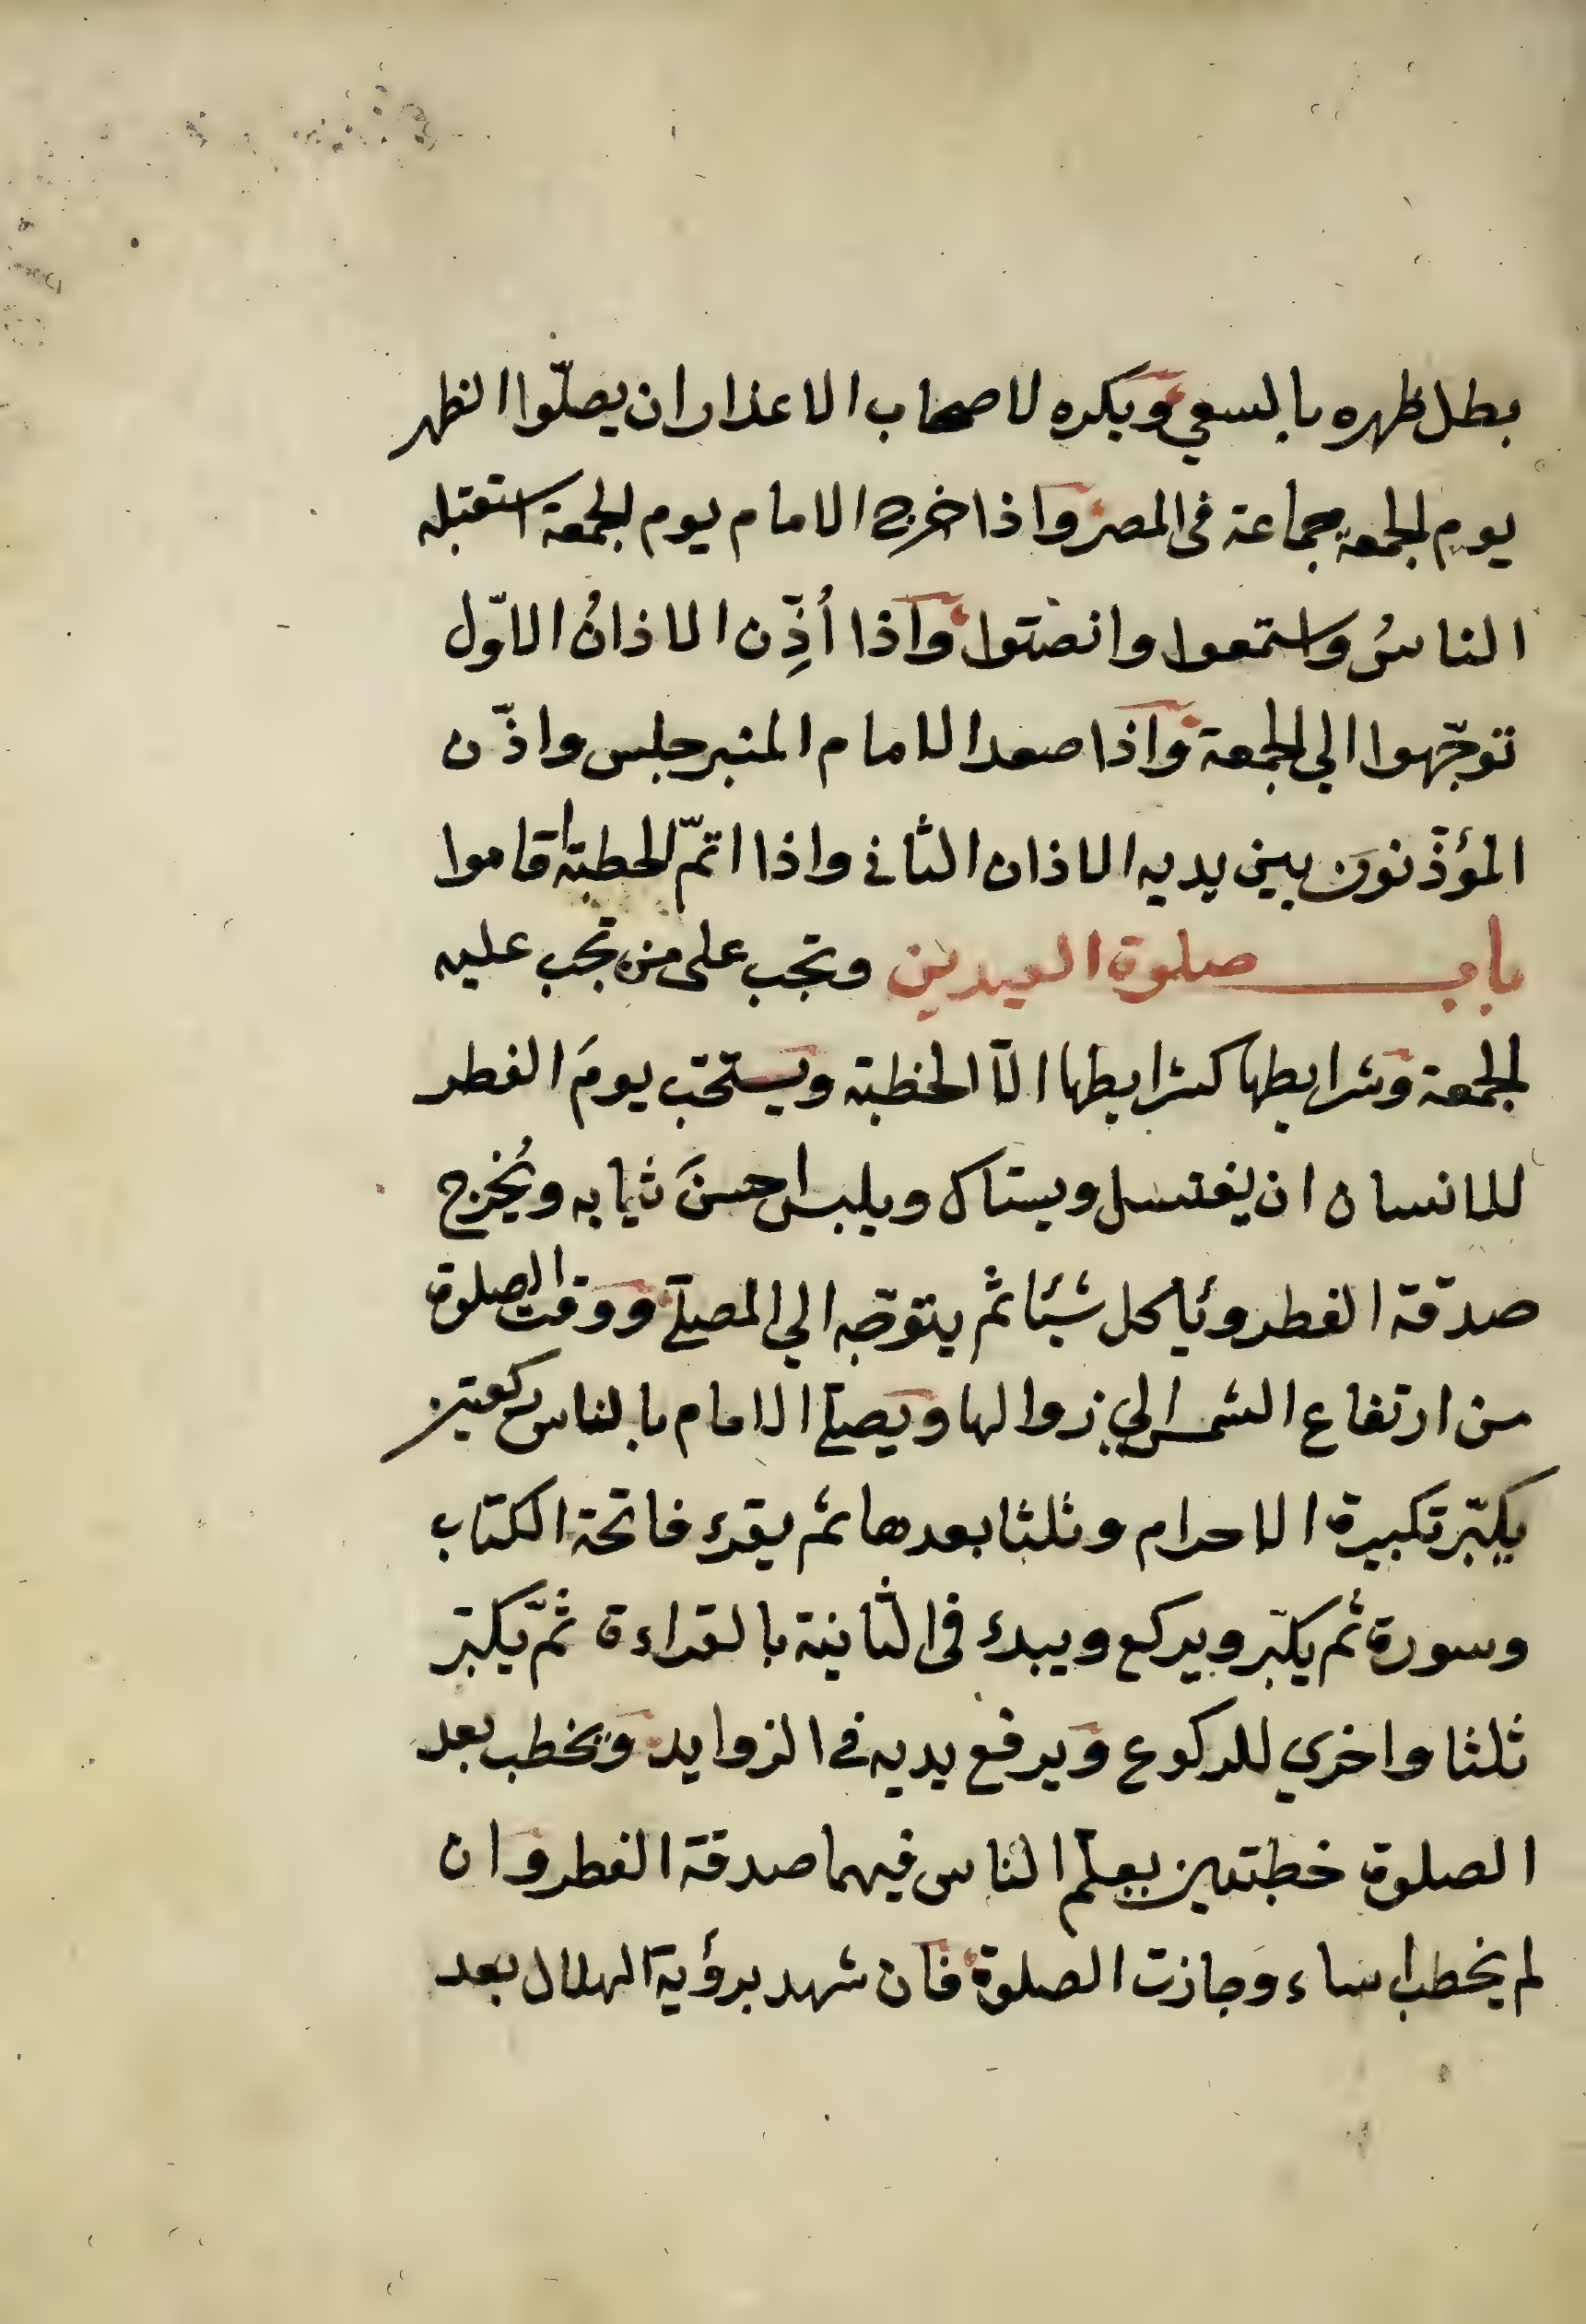 بطل ظهره بالسعي ويكره لاصحاب الاعذار ان يصلّوا الظهر
يوم الجمعة جماعة فى المصر واذا خرج الامام يوم الجمعة استقبله
الناسُ واستمعوا وانصتوا واذا أذِّن الاذانُ الاوّل
توجّهوا الي الجمعة واذا صعد الامام المنبر جلس واذّن
المؤذّنون بين يديه الاذان الثانى واذا اتمّ الخطبة اقاموا
باب صلوة العيدين وتجب على من تجب عليه
الجمعة وشرايطها كشرايطها الّا الخطبة ويستحب يومَ الفطر
للانسان ان يغتسل ويستاك ويلبس احسنَ ثيابه ويُخرج
صدقة الفطر وياكل شيئا ثم يتوجّه الي المصلّى ووقت الصلوة
من ارتفاع الشمس الي زوالها ويصلّى الامام بالناس ركعتين
يكبّر تكبيرة الاحرام وثلثا بعدها ثم يقرء فاتحة الكتاب
وسورة ثم يكبّر ويركع ويبدء فى الثانية بالقراءة ثمّ يكبّر
ثلثا واخري للركوع ويرفع يديه فى الزوايد ويخطب بعد
الصلوة خطبتين يعلّم الناس فيهما صدقة الفطر وان
لم يخطب اساء وجازت الصلوة فان شهد برؤية الهلال بعد